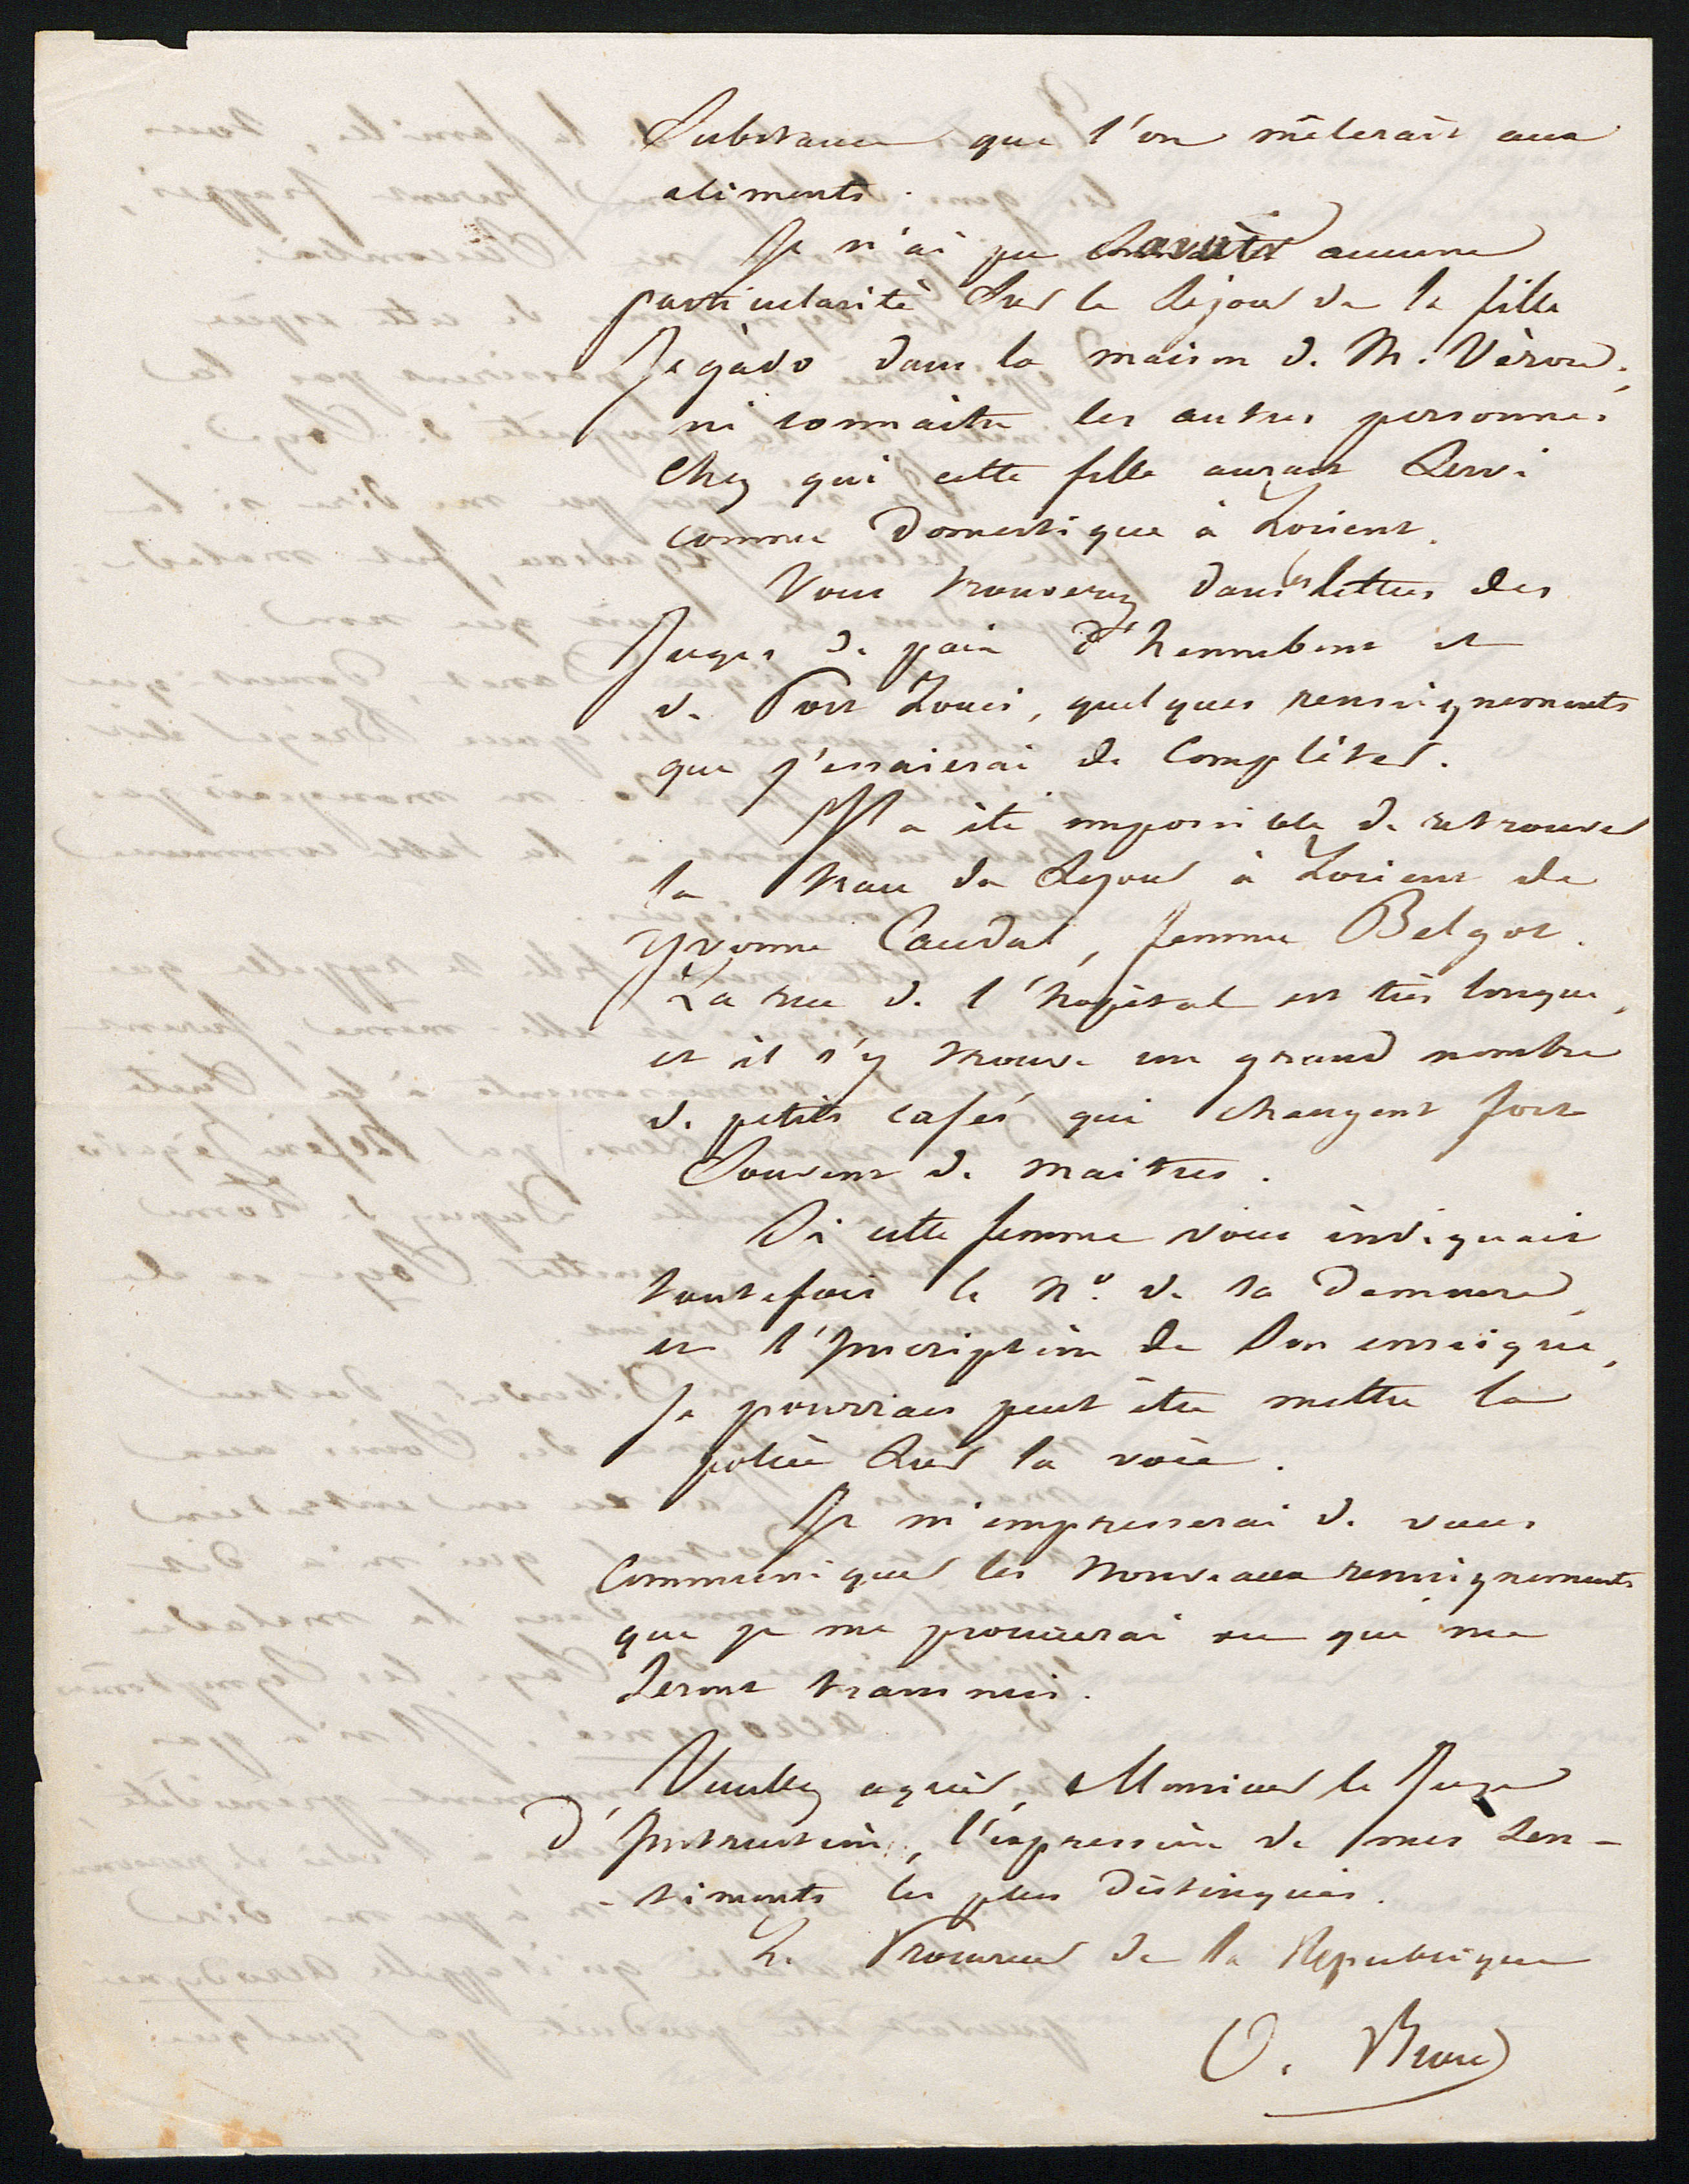 substance que l'on mêlerait aux
aliments.
Je n'ai pu savoir aucune
particularité sur le séjour de la fille
Jegado dans la maison de M. Vérou,
ni connaître les autres personnes
chez qui cette fille aurait servi
comme domestique à Lorient.
Vous trouverez dans les lettres des
Juges de paix d'hennebont et
de Port Louis, quelques renseignements
que j'essaierai de compléter.
Il a été impossible de retrouver
la trace du séjour à Lorient de
Yvonne Caudal, femme Belgot.
La rue de l'hopital est très longue,
et il s'y trouve un grand nombre
de petits cafés qui changent fort
souvent de maitres.
Si cette femme vous indiquait
toutefois le No. de sa demeure,
et l'Inscription de son enseigne,
je pourrais peut être mettre la
police sur la voie.
Je m'empresserai de vous
communiquer les nouveaux renseignements
que je me procurerai ou qui me
seront transmis.
Veuillez agréer, Monsieur le Juge
d'Instruction, l'expression de mes sen-
-timents les plus distingués.
Le Procureur de la République
O.